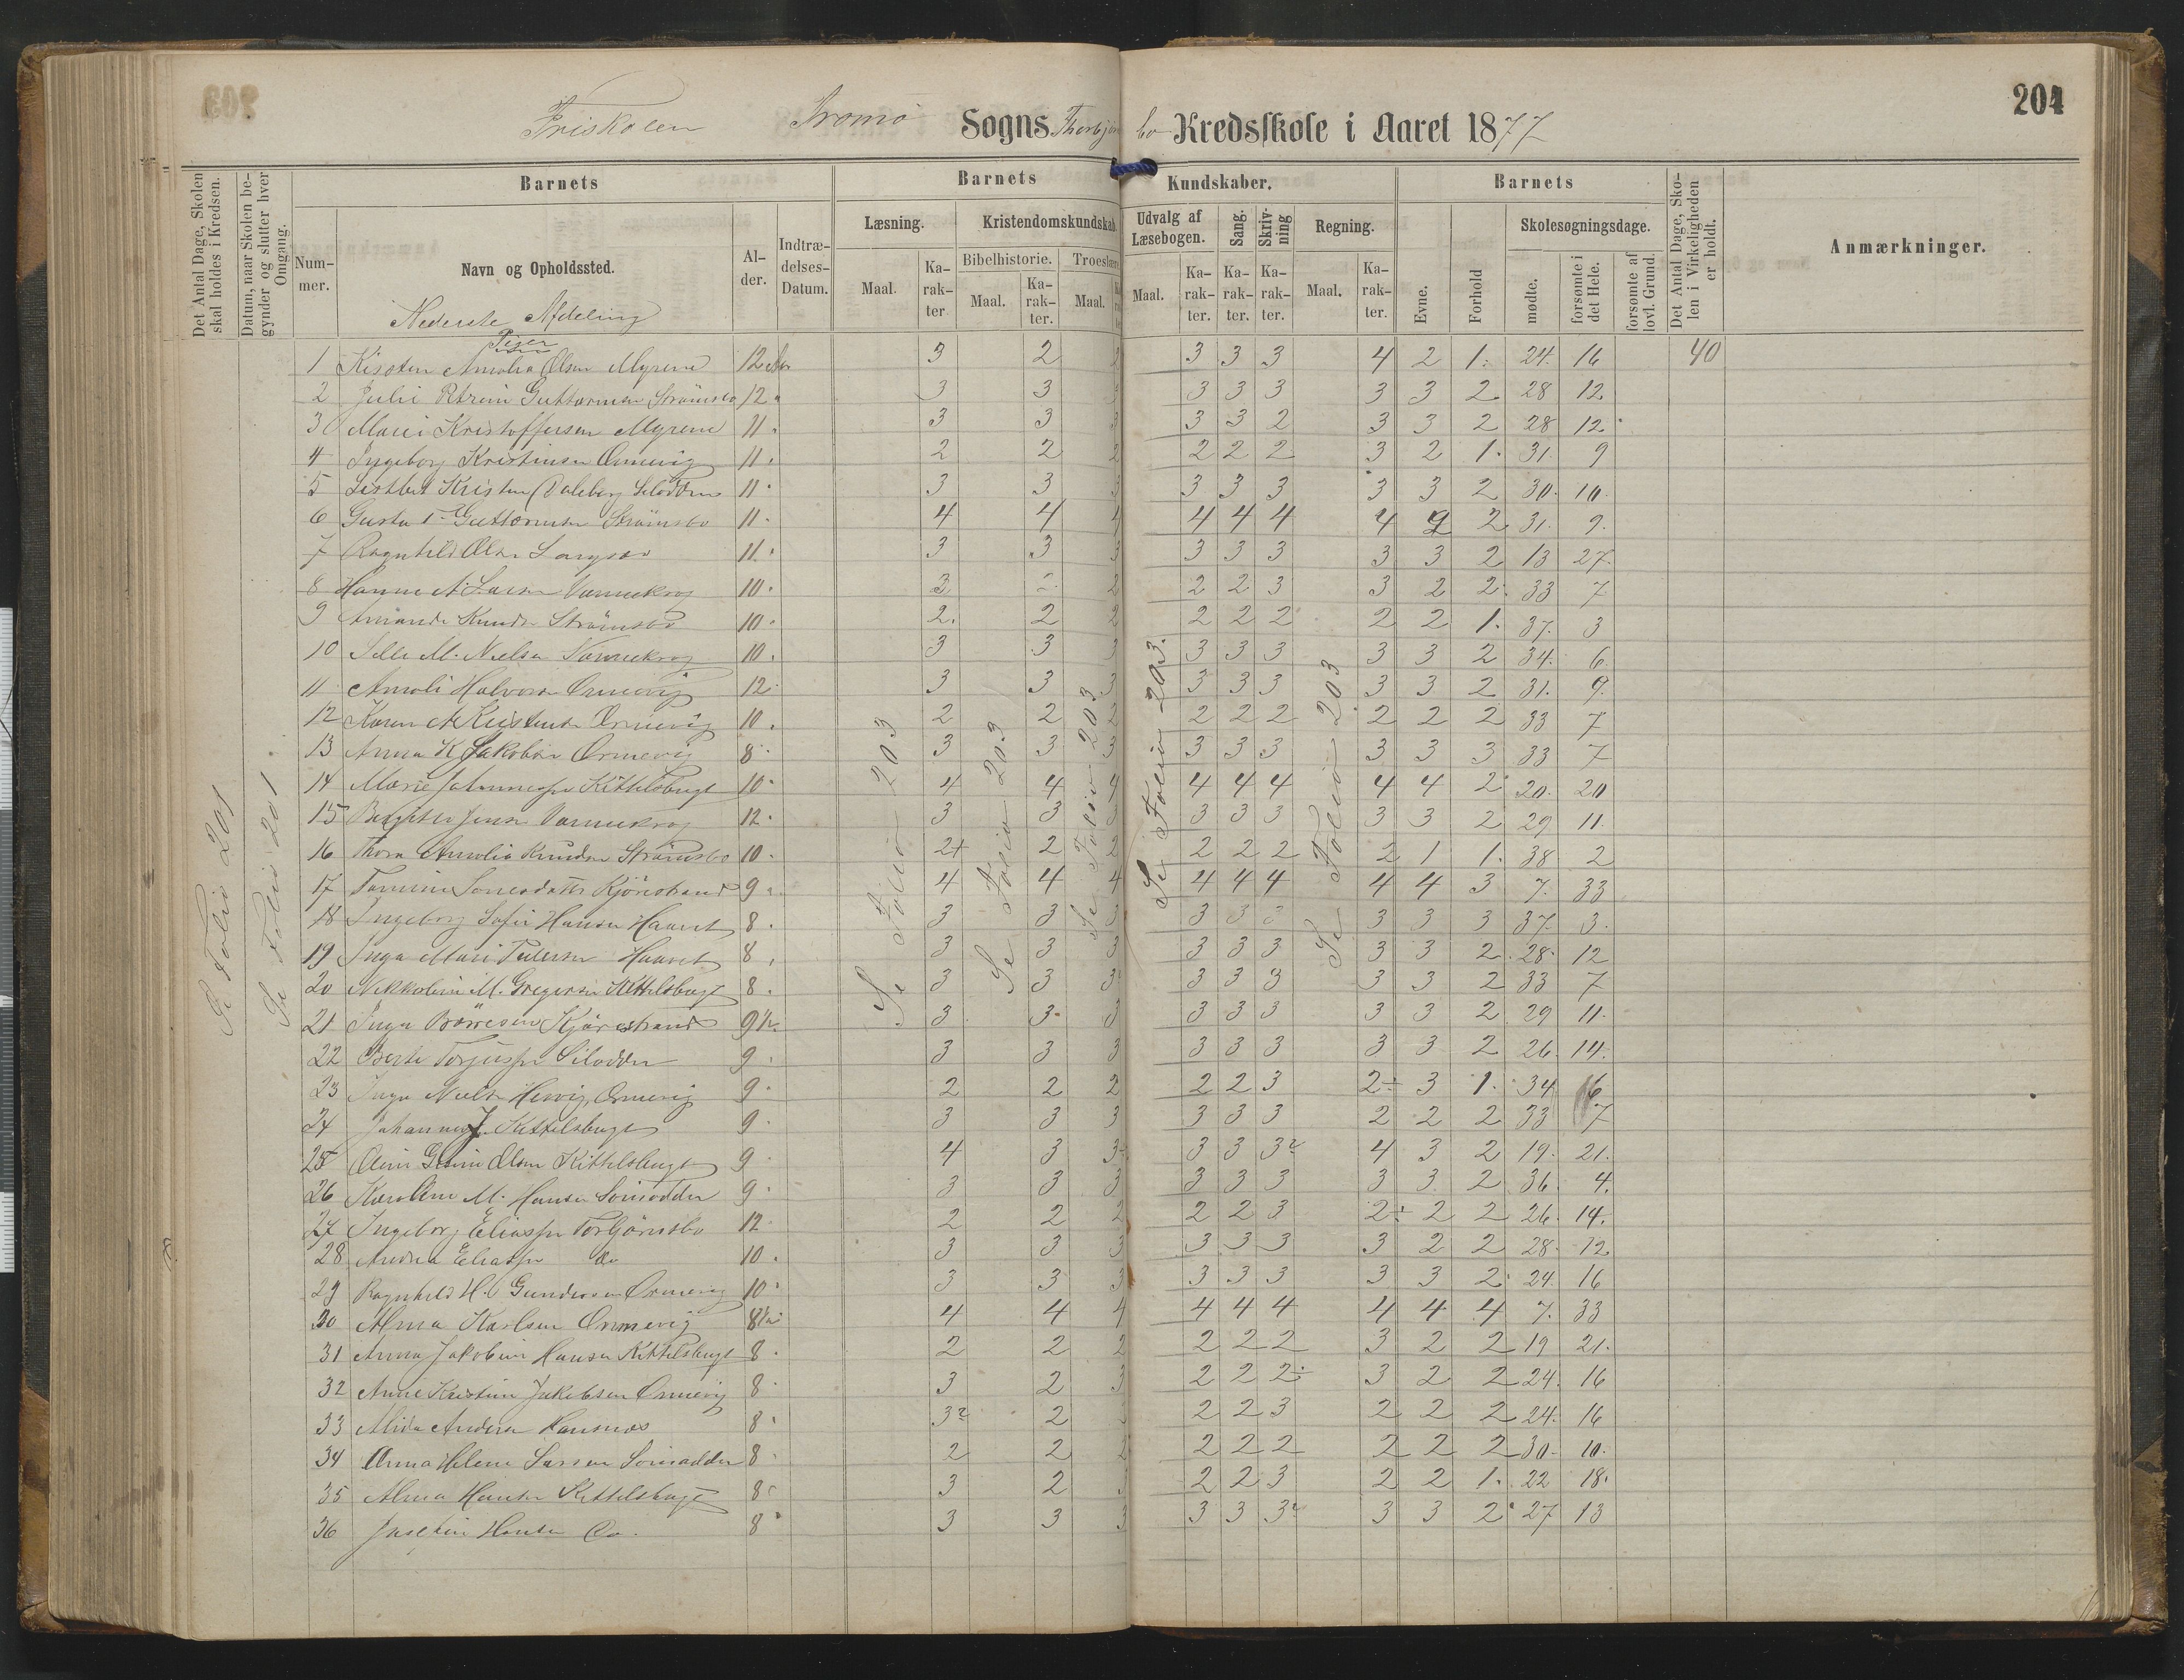 204
Friskolen Tromø Sogns Thorbjørnsbo Kredsskole i Aaret 1877
Det Antal Dage, Skolen skal holdes i Kredsen.
Datum, naar Skolen begynder og slutter hver Omgang.
Barnets
Nummer.
Navn og Opholdssted.
Alder.
Indtrædelses-Datum.
Barnets Kundskaber.
Læsning.
Maal.
Karakter
Kristendomskundskab.
Bibelhistorie.
Maal.
Karakter.
Troeslære
Maal.
Udvalg af Læsebogen.
Maal.
Karakter.
Sang.
Karakter.
Skrivning
Karakter.
Regning.
Maal.
Karakter.
Barnets
Evne.
Forhold
Skolesøgningsdage.
mødte.
forsømte i det Hele.
forsømte af lovl. Grund.
Det Antal Dage, Skolen i Virkeligheden er holdt.
Anmærkninger.
Nederste Afdeling
Piger
Se Folio 201
Se Folio 201
Se Folio 203
Se Folio 203
Se Folio 203
Se Folio 203.
Se Folio 203
1 Olsen Myrene 12 3 2 2 3 3 3 4 2 1. 24. 16 40
2 Guttormsen Strømsbo 12 3 3 3 3 3 3 3 3 2 28 12
3 Marie Kristoffersen Myrene 11 3 3 3 3 3 2 3 3 2 28 12
4 Ingeborg Kristensen Ormevig 11 2 2 2 2 2 2 3 2 1. 31. 9
5 Daleberg 11 3 3 3 3 3 3 3 3 2 30. 10
6 Guttormsen Strømsbo 11 4 4 4 4 4 4 4 2 31. 9.
7 Ragnhild Olsen Langsæ 11 3 3 3 3 3 3 3 3 2 13 27
8 Hanne A. Larsen Vannekrog 10 2 2 2 3 3 2 2 33 7
9 Amanda Knudsen Strømsbo 10 2. 2 2 2 2 2 2 2 1. 37. 3
10 M. Nielsen Vannekrog 10 3 3 3 3 3 3 3 3 2 34. 6
11 Amali Halvorsen Ormevig 12 3 3 3 3 3 3 3 3 2 31. 9.
12 Karen A. Kristensen Ormevig 10 2 2 2 2 2 2 2 2 2 33 7
13 Anna K. Jakobsen Ormevig 8 3 3 3 3 3 3 3 3 3 33 7
14 Marie Johannesen Kittelsbugt 10 4 4 4 4 4 4 4 4 2 20. 20
15 Jensen Vannekrog 12 3 3 3 3 3 3 3 3 2 29 11.
16 Thora Amalia Knudsen Strømsbo 10 2+ 2 2 2 2 2 2 1 1. 38 2
17 Kjørrestrand 9 4 4 4 4 4 4 4 4 3 7. 33
18 Ingeborg Sofie Hansen Haavet 8 3 3 3 3 3 3 3 3 3 37. 3.
19 Inga Marie Haavet 8 3 3 3 3 3 3 3 3 2 28. 12
20 M. Gregersen Kittelsbugt 8 3 3 3 3 3 3 3 3 2 33 7
21 Inga Børresen Kjørrestrand 9½ 3 3 3 3 3 3 3 3 2 29 11.
22 Berte Torjussen 9 3 3 3 3 3 3 3 3 2 26. 14.
23 Inga Nielsen Ormevig 9 2 2 2 2 2 3 2÷ 3 1. 34 6
24 Johanne J. Kittelsbugt 9 3 3 3 3 3 3 2 2 2 33 7
25 Olsen Kittelsbugt 9 4 3 3÷ 3 3 3 4 3 2 19. 21.
26 Karoline M. Hansen Songodden 9 3 3 3 3 3 3 3 3 2 36. 4.
27 Ingeborg Eliassen Torbjørnsbo 12 2 2 2 2 2 3 2÷ 2 2 26. 14.
28 Andrea Eliassen Do 10 3 3 3 3 3 3 3 2 2 28. 12
29 Ragnhild H. Gundersen Ormevig 10 3 3 3 3 3 3 3 3 2 24. 16
30 Alma Karlsen Ormevig 8½ 4 4 4 4 4 4 4 4 4 7. 33
31 Anna Jakobine Hansen Kittelsbugt 8 2 2 2 2 2 2 3 2 2 19 21.
32 Anne Kristine Jakobsen Ormevig 8 3 2 3 2 2 2÷ 3 2 2 24. 16
33 Alida Andersen 8 3 2 2 2 3 2 2 2 24. 16
34 Anna Helene Larsen 8 2 2 2 2 2 2 2 2 2 30. 10.
35 Alma Hansen Kittelsbugt 8 3 2 3 2 2 3 2 2 1. 22 18.
36 Josefine Hansen Do. 8 3 3 3 3 3 3 3 3 2 27 13